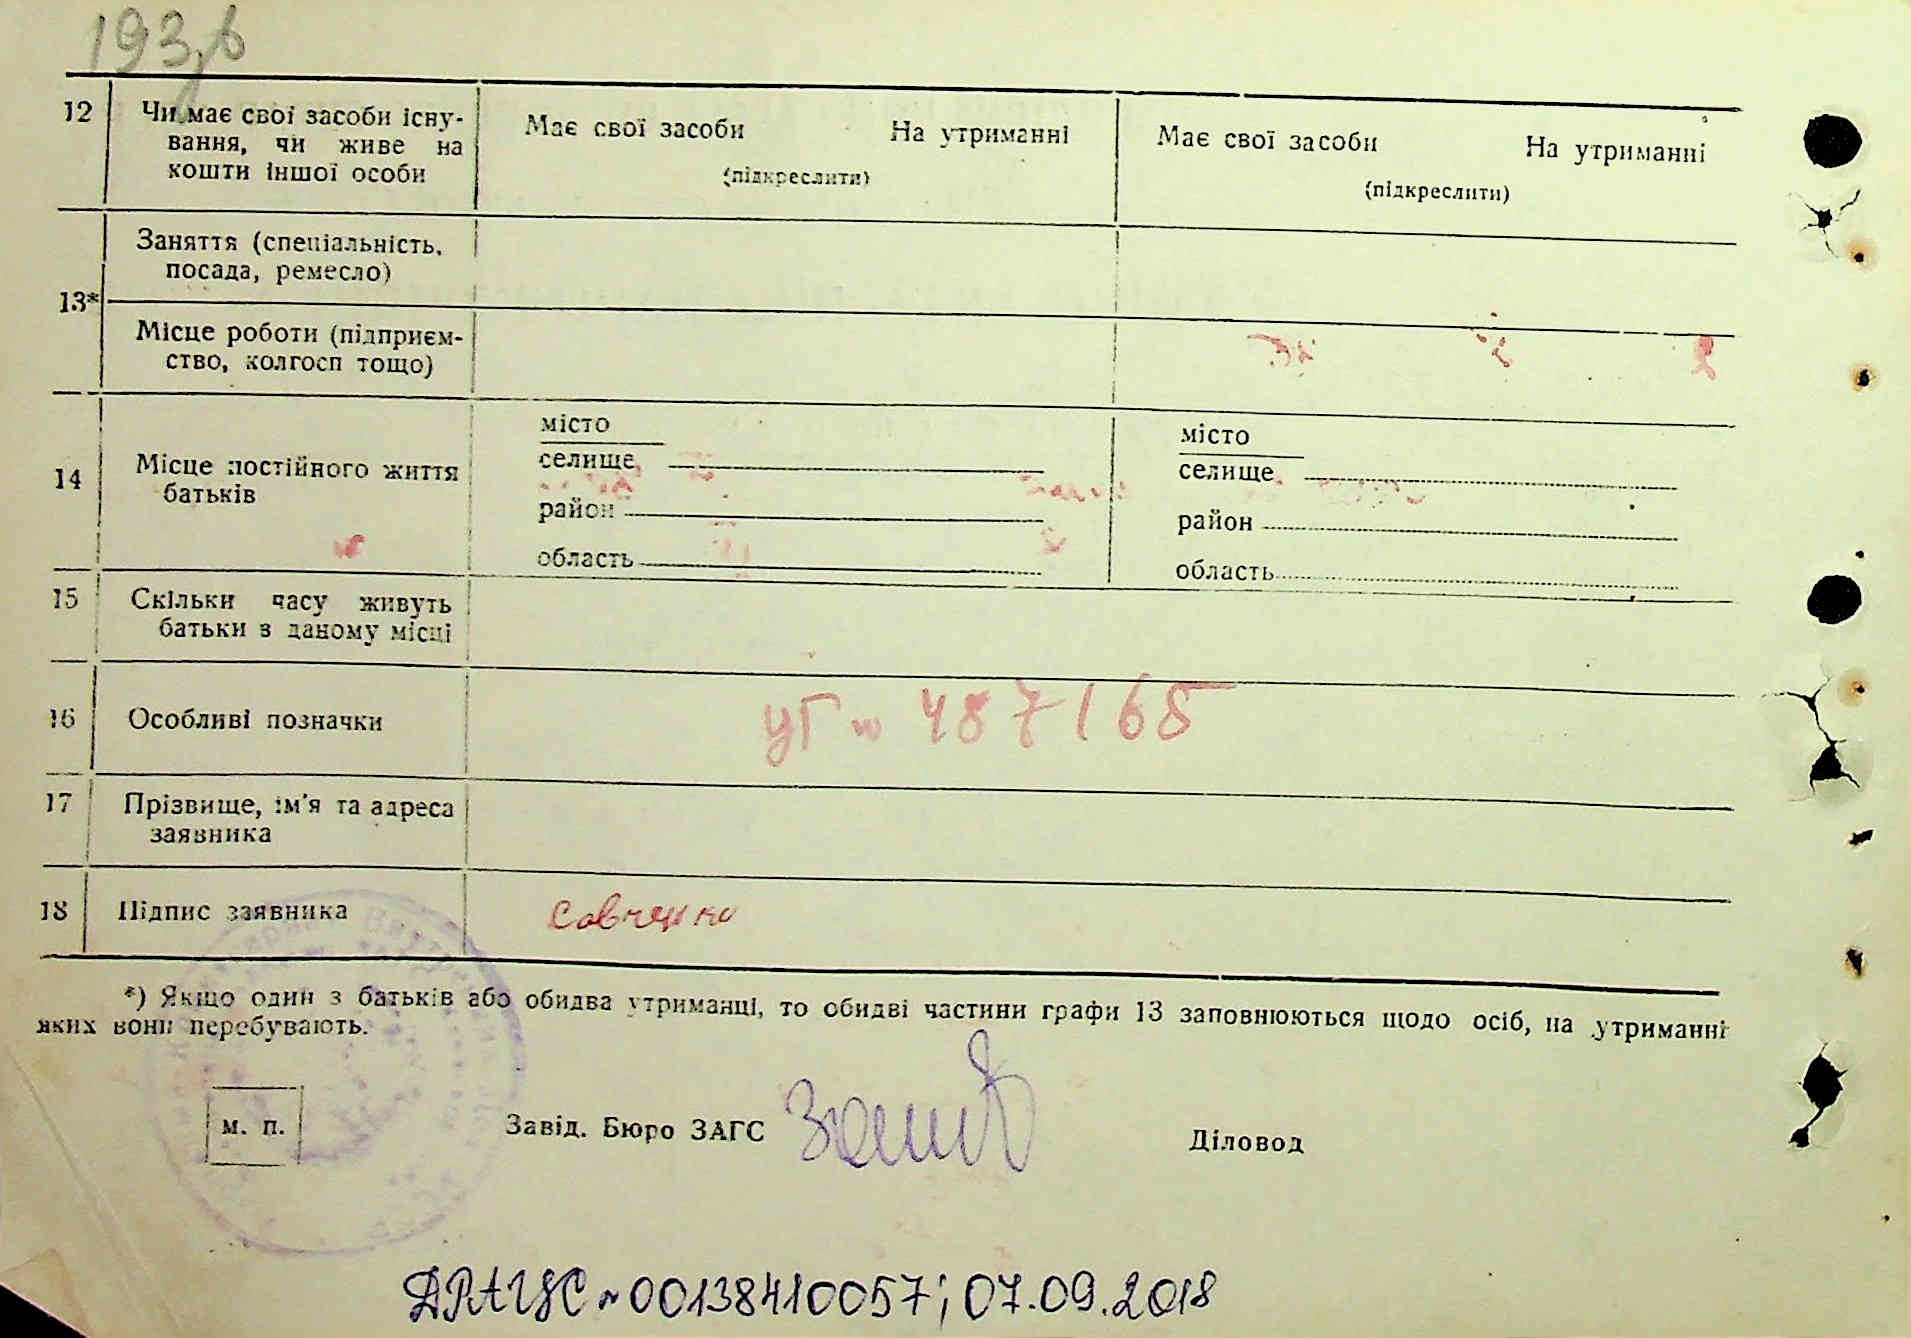 193
12
Чи має свої засоби існу-
вання, чи живе на
кошти іншої особи
Має свої засоби
На утриманні
(підкреслити)
Має свої засоби
На утриманні
(підкреслити)
13*
Заняття (спеціальність,
посада, ремесло)
Місце роботи (підприєм-
ство, колгосп тощо)
14
Місце постійного життя
батьків
місто
селище
район
область
місто
селище
район
область
15
Скільки часу живуть
батьки з даному місці
16
Особливі позначки
УГ № 487165
17
Прізвище, ім'я та адреса
заявника
18
Підпис заявника
*) Якщо один з батьків або обидва утриманці, то обидві частини графи 13 заповнюються щодо осіб, на утриманні
яких вони перебувають.
м. п.
Завід. Бюро ЗАГС
Діловод
ДРАЦС № 00138410057; 07.09.2018